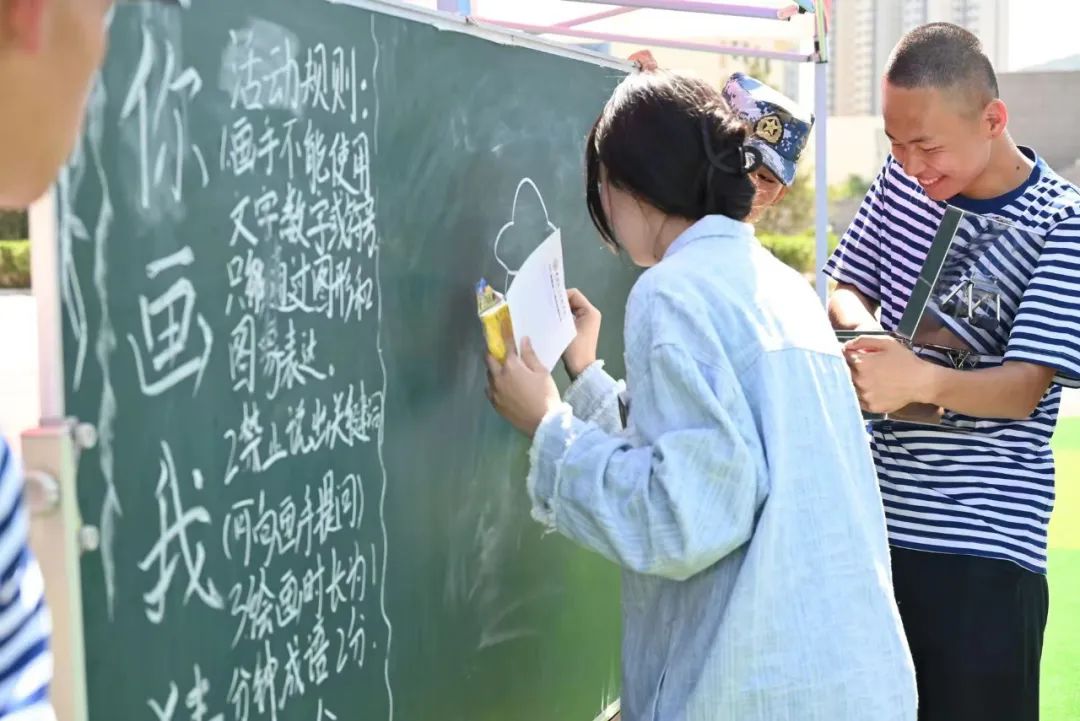 你画我猜
活动规则：
1画手不能使用
文字数字或符号
只能通过图形和
图象表达.
2禁止说出关键词
(可向画手提问)
3绘画时长为1
分钟成语2分.